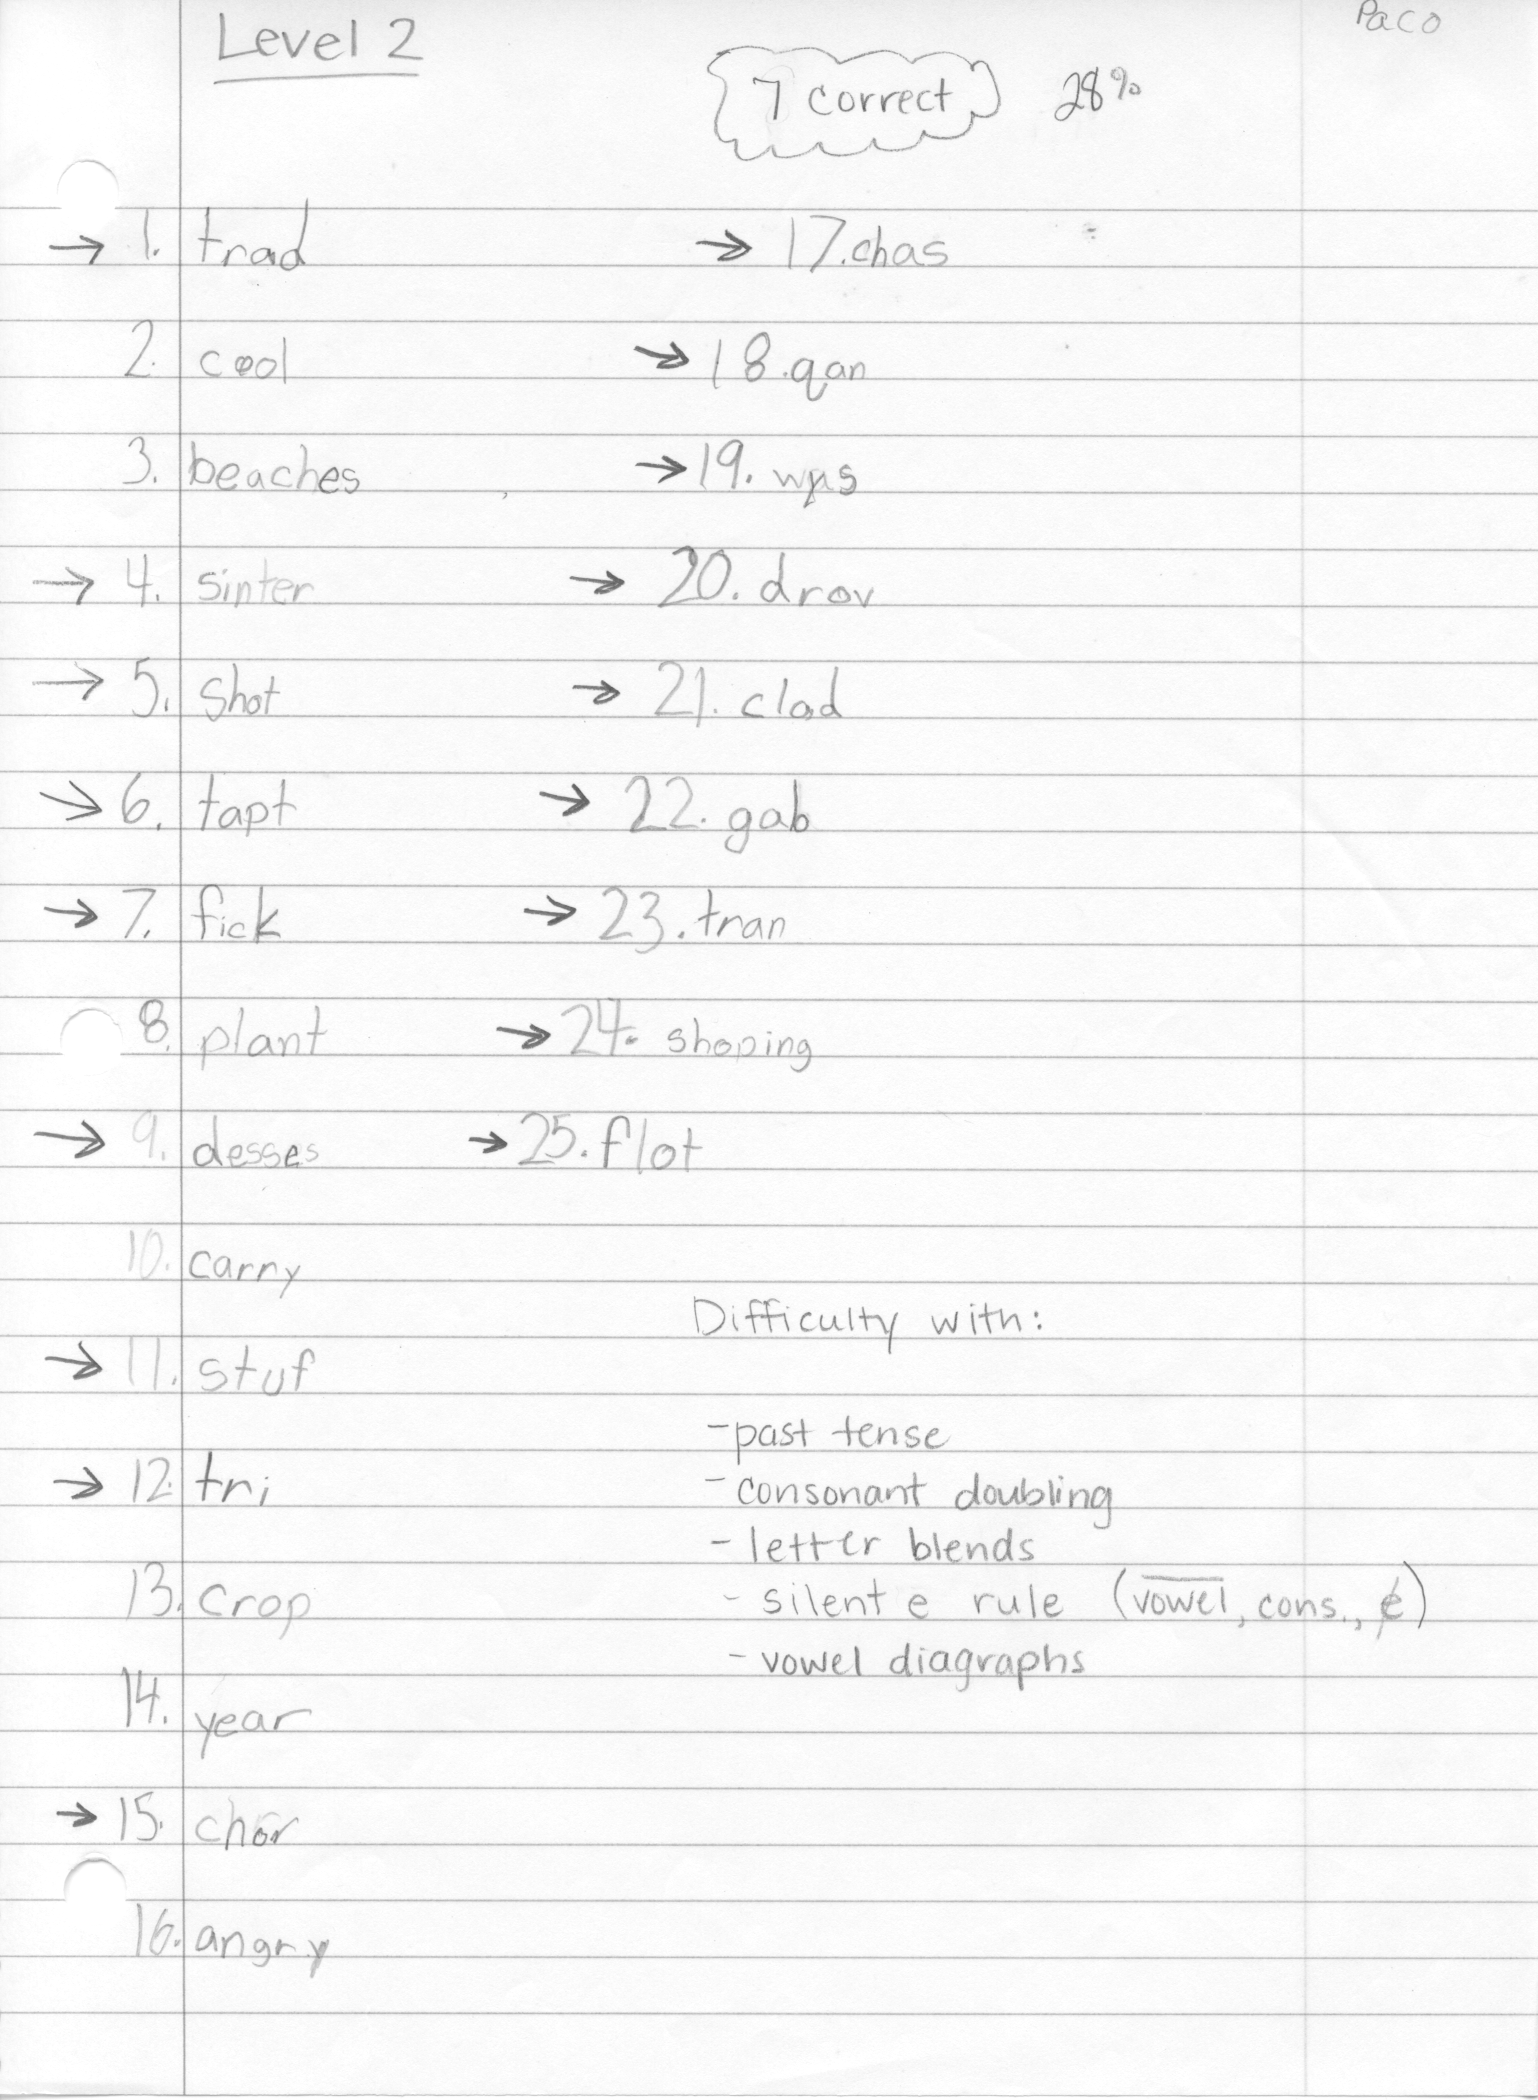 Paco
Level 2
7 correct 28%
→ 1. trad
2. cool
3. beaches
→ 4. sinter
→ 5. shot
→ 6. tapt
→ 7. fick
8. plant
→ 9. desses
10. carry
→ 11. stuf
→ 12. tri
13. crop
14. year
→ 15. chor
16. angry
→ 17. chas
→ 18. qan
→ 19.
→ 20. drov
→ 21. clad
→ 22. gab
→ 23. tran
→ 24. shoping
→ 25. flot
Difficulty with:
- past tense
- consonant doubling
- letter blends
- silent e rule (vowel, cons., e)
- vowel diagraphs